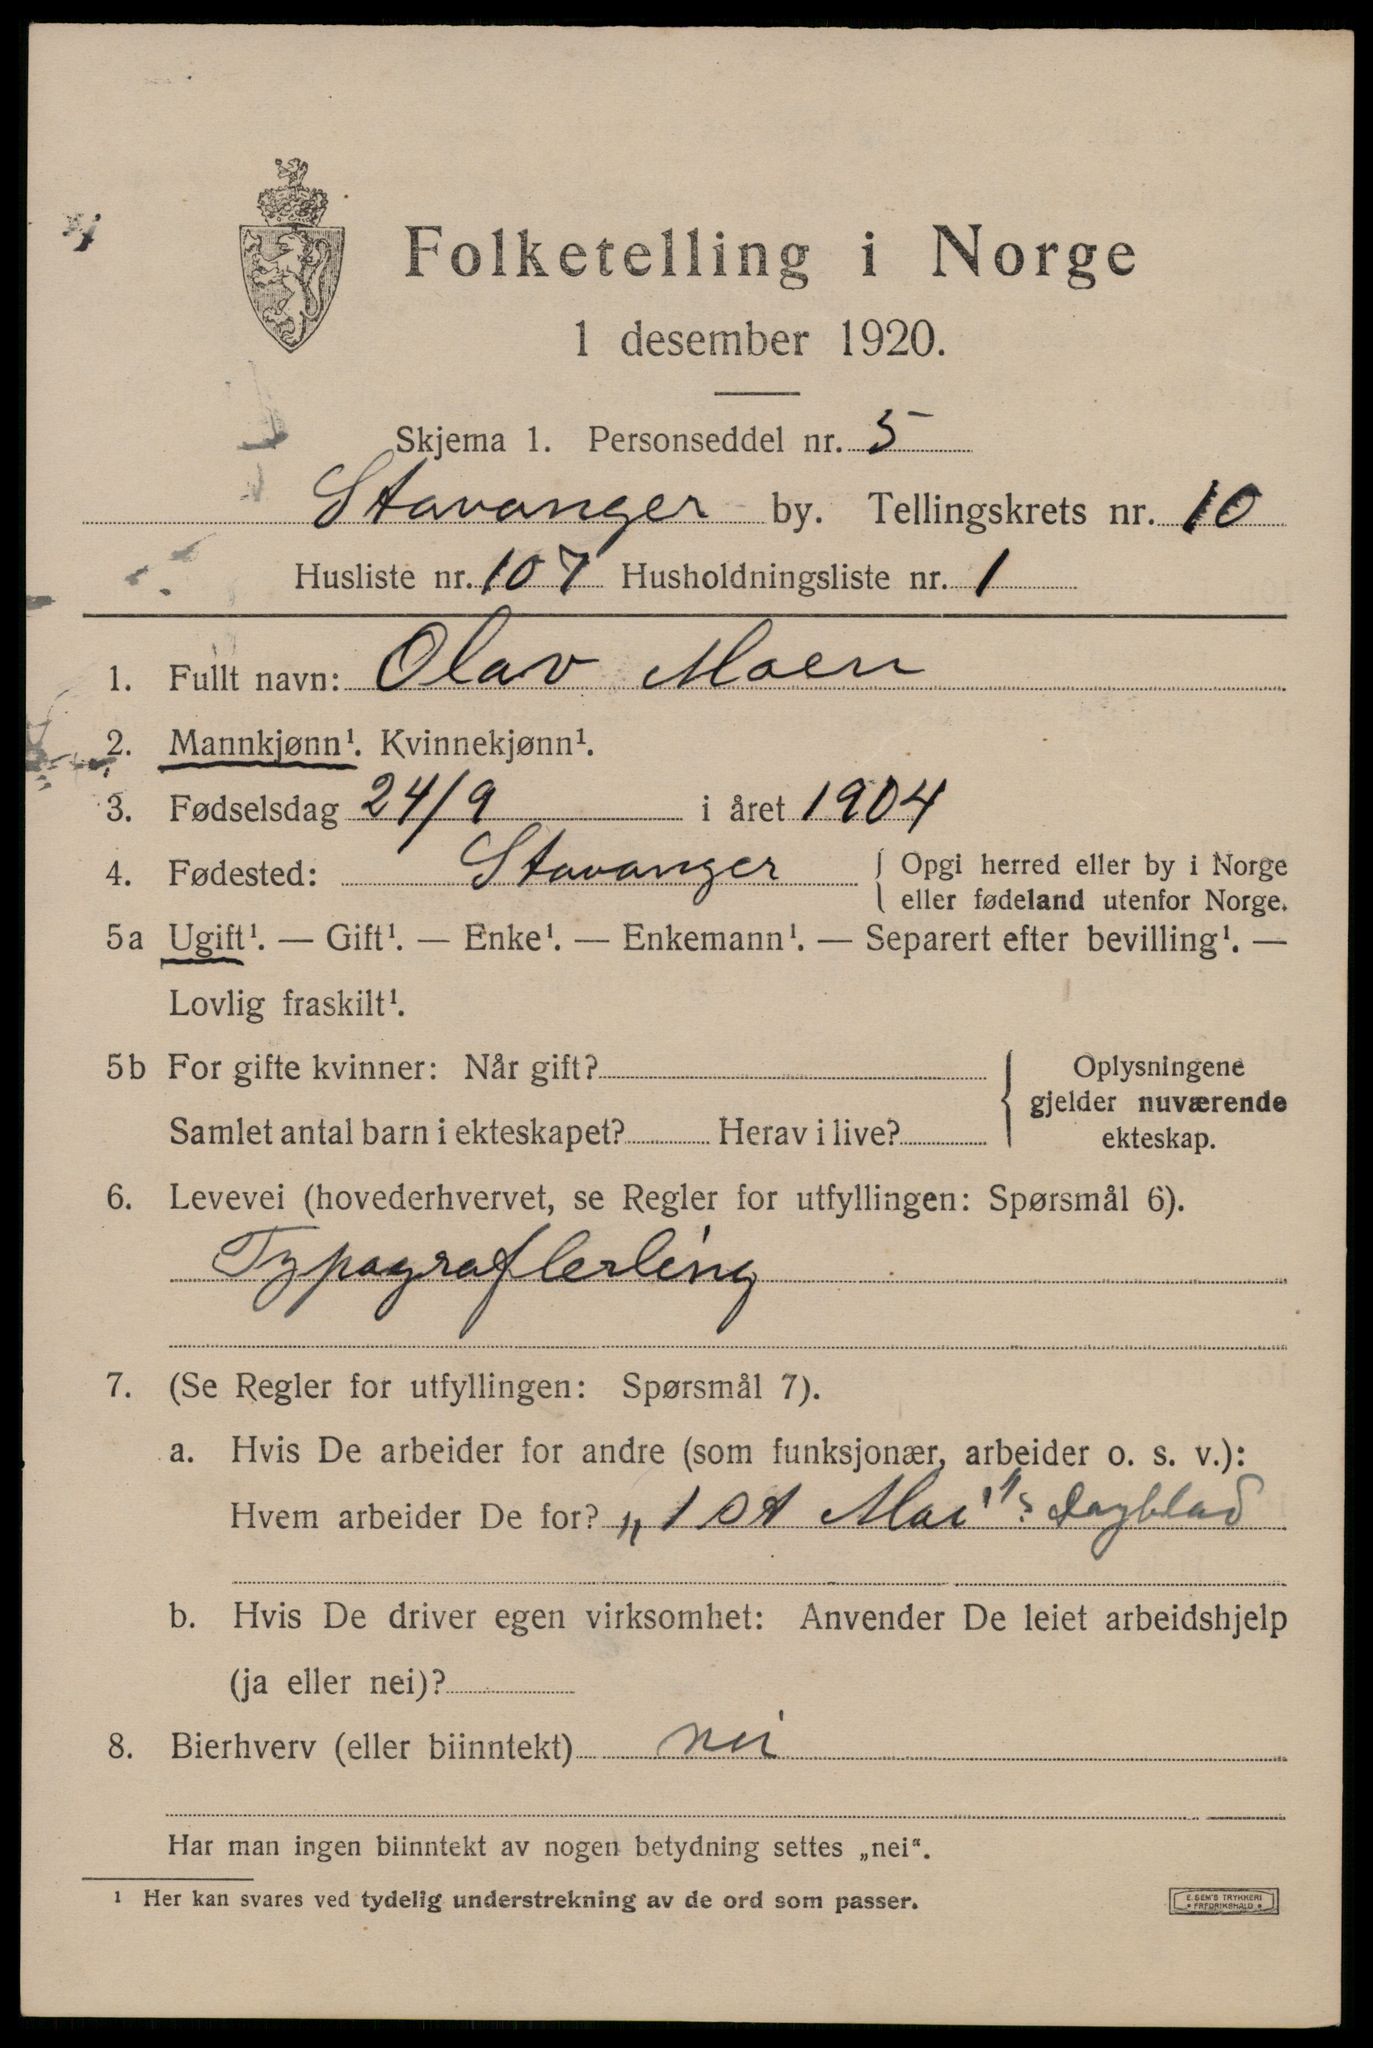 Folketelling i Norge
1 desember 1920.
Skjema 1. Personseddel nr. 5
Stavanger by. Tellingskrets nr. 10
Husliste nr. 107 Husholdningsliste nr. 1
1. Fullt navn: Olav Moen
2. Mannkjønn¹. Kvinnekjønn¹.
3. Fødselsdag 24/9 i året 1904
4. Fødested: Stavanger { Opgi herred eller by i Norge
eller fødeland utenfor Norge.
5a Ugift¹. — Gift¹. — Enke¹. — Enkemann¹. — Separert efter bevilling¹. —
Lovlig fraskilt¹.
5b For gifte kvinner: Når gift? { Oplysningene
gjelder nuværende
Samlet antal barn i ekteskapet? Herav i live? ekteskap.
6. Levevei (hovederhvervet, se Regler for utfyllingen: Spørsmål 6).
Typograflerling
7. (Se Regler for utfyllingen: Spørsmål 7).
a. Hvis De arbeider for andre (som funksjonær, arbeider o. s. v.):
Hvem arbeider De for? „1st Mai"s Dagblad
b. Hvis De driver egen virksomhet: Anvender De leiet arbeidshjelp
(ja eller nei)?
8. Bierhverv (eller biinntekt) nei
Har man ingen biinntekt av nogen betydning settes „nei“.
¹ Her kan svares ved tydelig understrekning av de ord som passer.
E. SEM'S TRYKKERI
• FREDRIKSHALD •